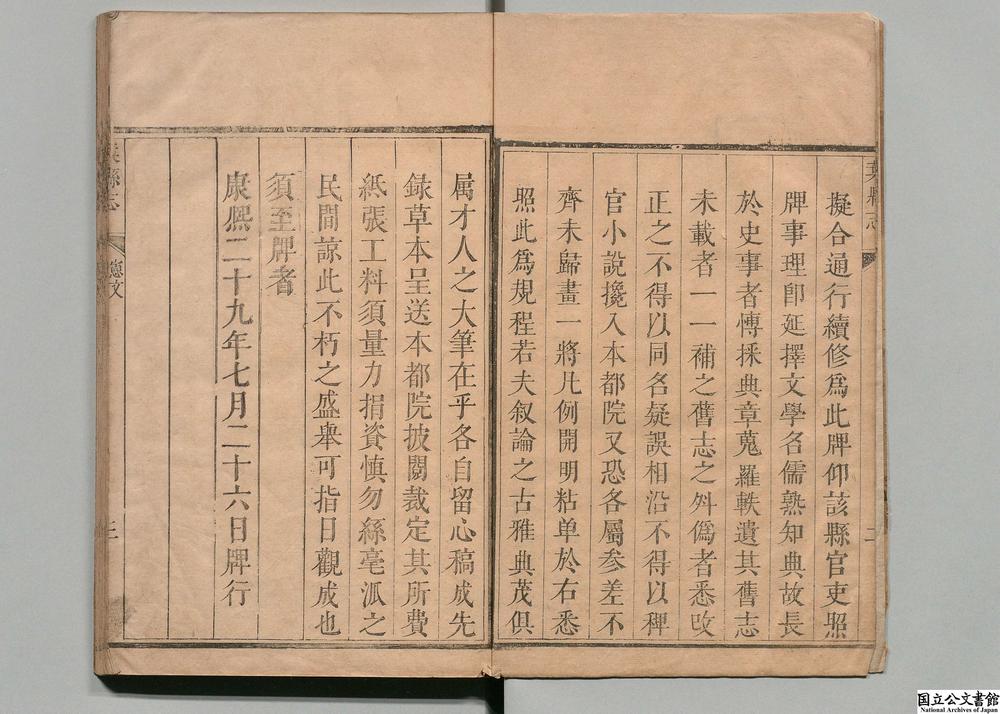 擬合通行續修爲此牌仰該縣官吏照
牌事理卽延擇文學名儒熟知典故長
於史事者愽採典章蒐羅軼遺其舊志
未載者一一補之舊志之舛僞者悉改
正之不得以同名疑誤相沿不得以稗
官小說攙入本都院又恐各屬参差不
齊未歸畫一將凡例開明粘单於右悉
照此爲規程若夫叙論之古雅典茂俱
属才人之大筆在乎各自留心稿成先
録草本呈送本都院披閱裁定其所費
紙張工料須量力捐資慎勿絲毫派之
民間諒此不朽之盛舉可指日觀成也
須至牌者
康熈二十九年七月二十六日牌行
縣志
憲文
三
国立公文書館
National Archives of Japan